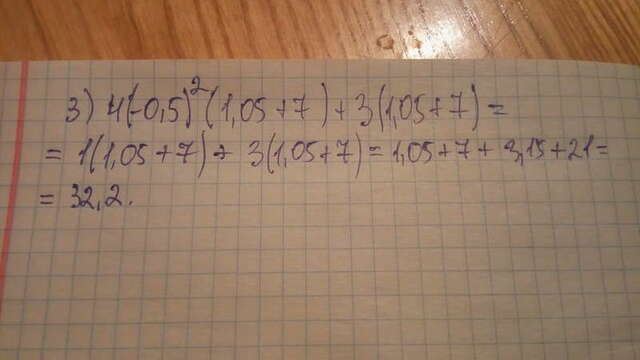 3) 4(-0,5)²(1,05+7)+3(1,05+7)=
= 1(1,05+7)+ 3(1,05+7)=1,05+7+3,15+21=
= 32,2.